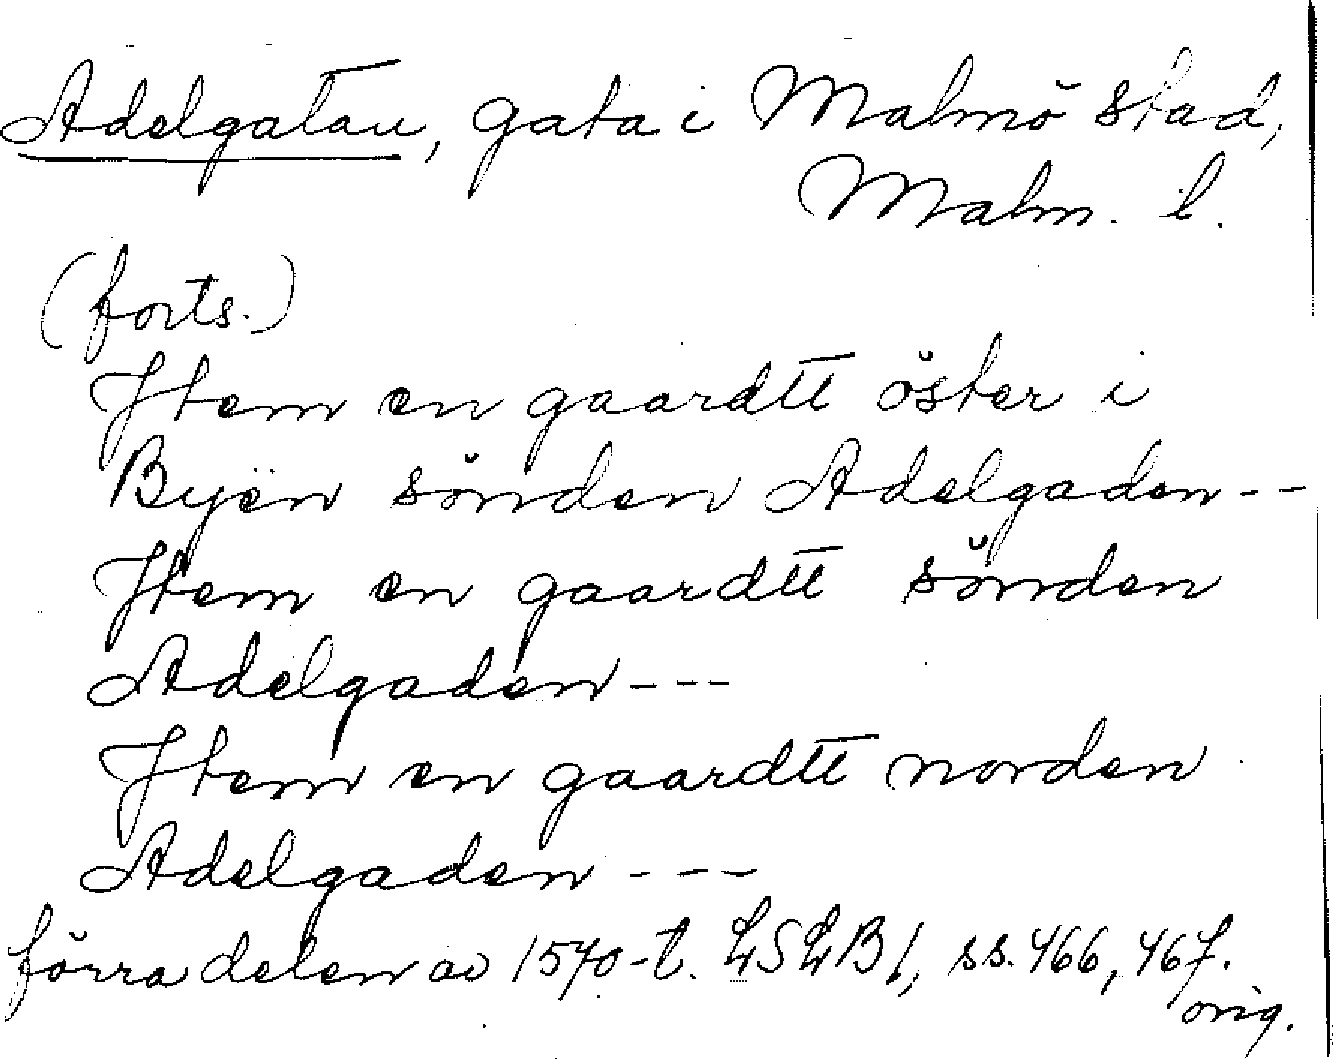 Adelgatan, gata i Malmö stad,
Malm. l.
(forts.)
Item en gaardtt öster i
Byen sönden Adelgaden--
Item en gaardtt sönden
Adelgaden---
Item en gaardtt norden
Adelgaden---
förra delen av 1570-t. LSLB I, ss. 466, 467.
orig.